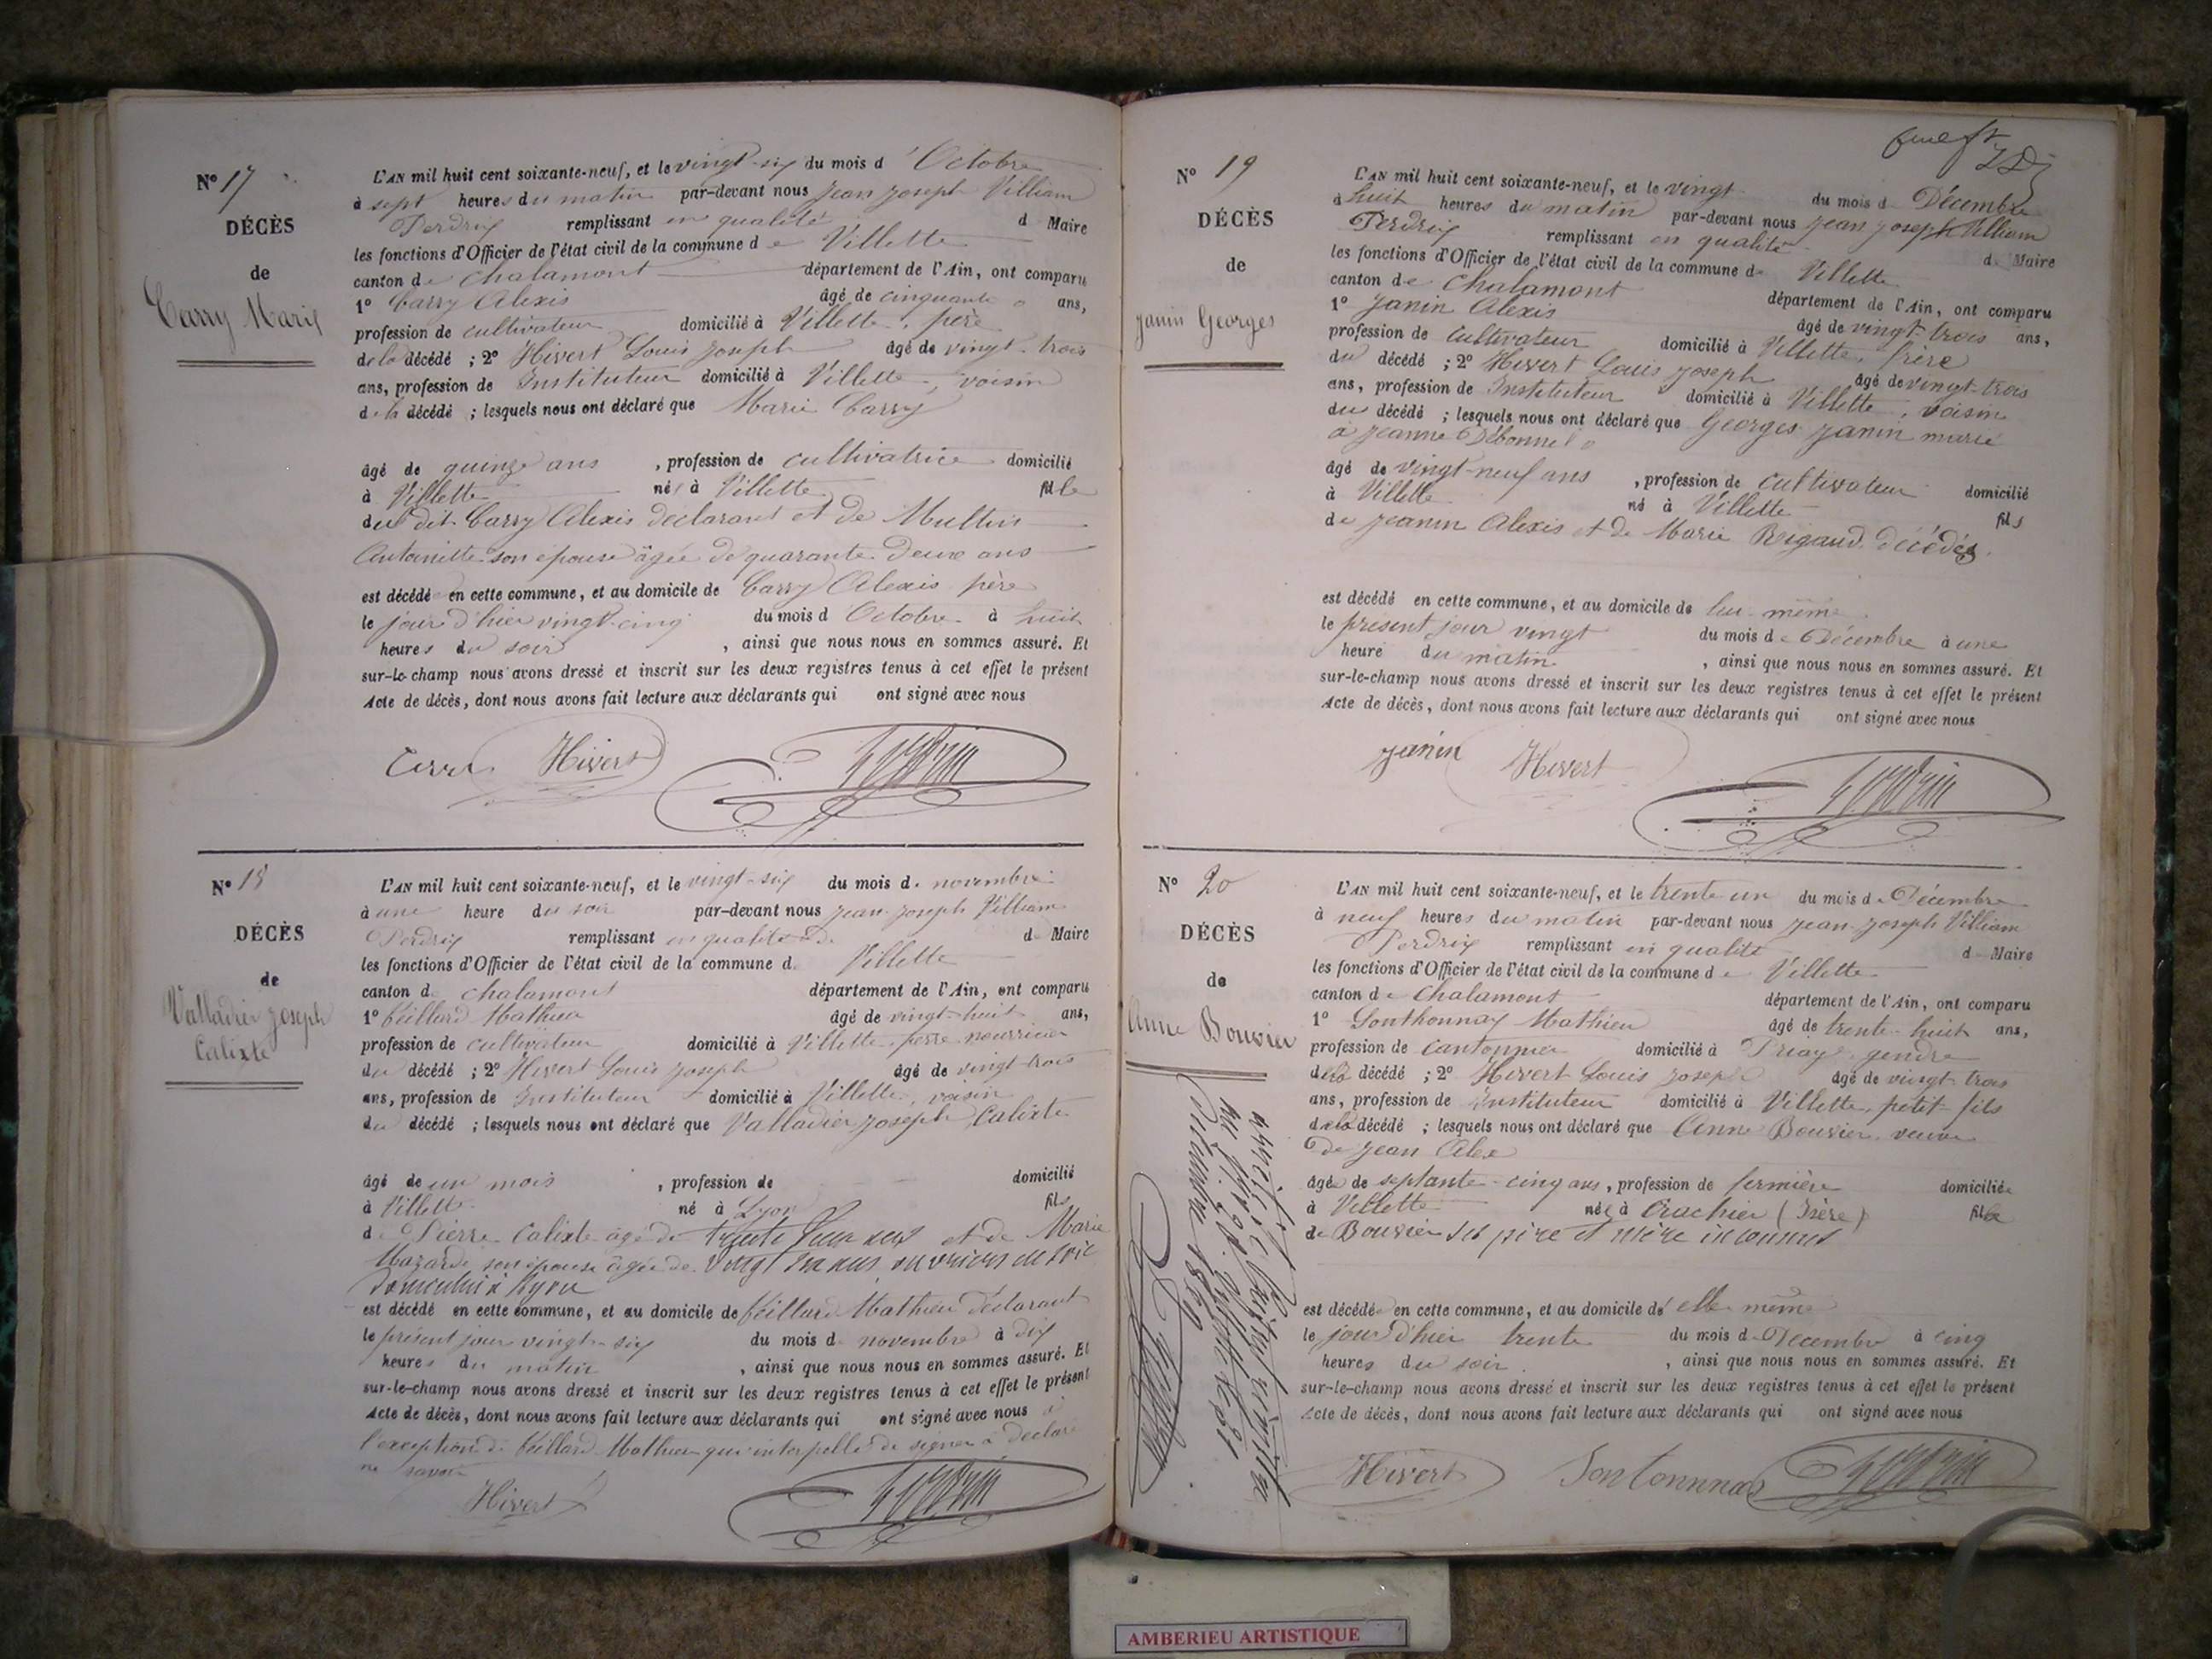 N° 17
DÉCÈS
de
Carry Marie
L'AN mil huit cent soixante-neuf, et le vingt-six du mois d'Octobre
à sept heures du matin par-devant nous Jean Joseph Villiam
Perdrix remplissant en qualité d Maire
les fonctions d'Officier de l'état civil de la commune de Villette
canton de Chalamont département de l'Ain, ont comparu
1° Carry Alexis âgé de cinquante ans,
profession de cultivateur domicilié à Villette, père
de la décédé ; 2° Hivert Louis Joseph âgé de vingt-trois
ans, profession de Instituteur domicilié à Villette, voisin
de la décédé ; lesquels nous ont déclaré que Marie Carry
âgé de quinze ans , profession de cultivatrice domicilié
à Villette née à Villette fille
du dit Carry Alexis déclarant et de
Antoinette son épouse âgée de quarante deux ans
est décédé en cette commune, et au domicile de Carry Alexis père
le jour d'hier vingt-cinq du mois d'Octobre à huit
heures du soir , ainsi que nous nous en sommes assuré. Et
sur-le-champ nous avons dressé et inscrit sur les deux registres tenus à cet effet le présent
Acte de décès, dont nous avons fait lecture aux déclarants qui ont signé avec nous
Hivert
N° 18
DÉCÈS
de
Valladier Joseph
Calixte
L'AN mil huit cent soixante-neuf, et le vingt-six du mois de novembre
à une heure du soir par-devant nous Jean Joseph Villiam
Perdrix remplissant en qualité de d Maire
les fonctions d'Officier de l'état civil de la commune d Villette
canton de Chalamont département de l'Ain, ont comparu
1° Mathieu âgé de vingt-huit ans,
profession de cultivateur domicilié à Villette, père nourricier
du décédé ; 2° Hivert Louis Joseph âgé de vingt-trois
ans, profession de Instituteur domicilié à Villette, voisin
du décédé ; lesquels nous ont déclaré que Valladier Joseph Calixte
âgé de un mois , profession de domicilié
à Villette né à Lyon fils
de Pierre Calixte âgé de trente et de Marie
son épouse âgée de vingt
est décédé en cette commune, et au domicile de Mathieu déclarant
le présent jour vingt-six du mois de novembre à dix
heures du matin , ainsi que nous nous en sommes assuré. Et
sur-le-champ nous avons dressé et inscrit sur les deux registres tenus à cet effet le présent
Acte de décès, dont nous avons fait lecture aux déclarants qui ont signé avec nous à
l'exception de Mathieu qui interpellé de signer a déclaré
ne savoir
Hivert
N° 19
DÉCÈS
de
Janin Georges
L'AN mil huit cent soixante-neuf, et le vingt du mois de Décembre
à huit heures du matin par-devant nous Jean Joseph Villiam
Perdrix remplissant en qualité d Maire
les fonctions d'Officier de l'état civil de la commune de Villette
canton de Chalamont département de l'Ain, ont comparu
1° Janin Alexis âgé de vingt-trois ans,
profession de cultivateur domicilié à Villette, frère
du décédé ; 2° Hivert Louis Joseph âgé de vingt-trois
ans, profession de Instituteur domicilié à Villette, voisin
du décédé ; lesquels nous ont déclaré que Georges Janin marié
à Jeanne
âgé de vingt-neuf ans , profession de cultivateur domicilié
à Villette né à Villette fils
de Jeanin Alexis et de Marie Reigaud décédés.
est décédé en cette commune, et au domicile de lui-même
le présent jour vingt du mois de Décembre à une
heure du matin , ainsi que nous nous en sommes assuré. Et
sur-le-champ nous avons dressé et inscrit sur les deux registres tenus à cet effet le présent
Acte de décès, dont nous avons fait lecture aux déclarants qui ont signé avec nous
Janin Hivert
N° 20
DÉCÈS
de
Anne Bouvier
L'AN mil huit cent soixante-neuf, et le trente un du mois de Décembre
à neuf heures du matin par-devant nous Jean Joseph Villiam
Perdrix remplissant en qualité d Maire
les fonctions d'Officier de l'état civil de la commune de Villette
canton de Chalamont département de l'Ain, ont comparu
1° Sonthonnax Mathieu âgé de trente-huit ans,
profession de cantonnier domicilié à Priay gendre
de la décédé ; 2° Hivert Louis Joseph âgé de vingt-trois
ans, profession de Instituteur domicilié à Villette, petit-fils
de la décédé ; lesquels nous ont déclaré que Anne Bouvier, veuve
de Jean
âgée de septante-cinq ans, profession de fermière domiciliée
à Villette née à Crachier (Isère) fille
de Bouvier père et mère inconnus
est décédée en cette commune, et au domicile de elle même
le jour d'hier trente du mois de Décembre à cinq
heures du soir , ainsi que nous nous en sommes assuré. Et
sur-le-champ nous avons dressé et inscrit sur les deux registres tenus à cet effet le présent
Acte de décès, dont nous avons fait lecture aux déclarants qui ont signé avec nous
Hivert
AMBERIEU ARTISTIQUE